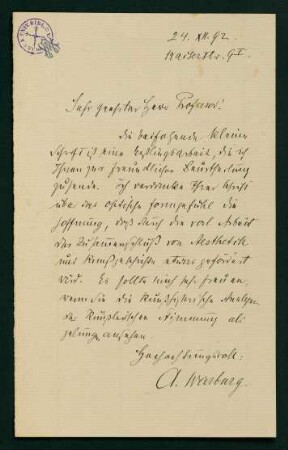 24. XII. 92
Kaiserstr. 9 I
Sehr geehrter Herr Professor!
Die beifolgende kleine
Schrift ist eine Erstlingsarbeit, die ich
Ihnen zur freundlichen Beurtheilung
zusende. Ich verdanke Ihrer Schrift
über das optische Formgefühl die
Hoffnung, daß durch die Arbeit
der Zusammenschluß von Aesthetik
und Kunstgeschichte etwas gefördert
wird. Es sollte mich sehr freuen,
wenn Sie die Analyse
der künstlerischen Stimmung als
gelungen ansehen.
Hochachtungsvoll:
A. Warburg.